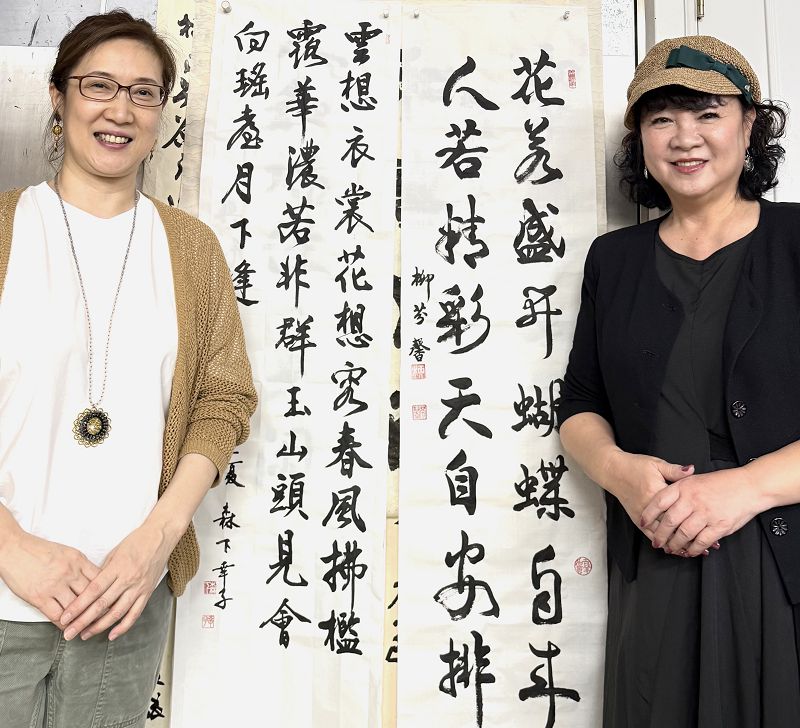 花若盛开蝴蝶自来
人若精彩天自安排
柳芬馨
雲想衣裳花想容春風拂檻
露華濃若非群玉山頭見會
向瑤臺月下逢
夏 森下幸子